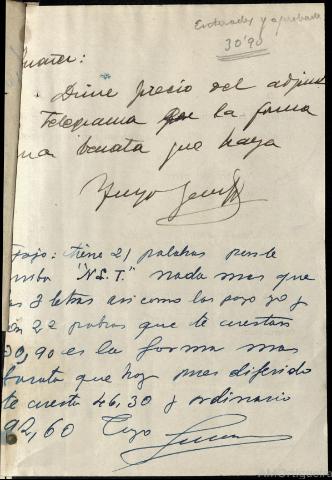 Enterados y aprobado
30'90
Dime precio del adjunto
telegrama por la forma
mas barata que haya
Tuyo
Fajo: tiene 21 palabras ponle
arriba "N.L.T." nada mas que
las 3 letras asi como las pogo yo y
son 22 palabras que te cuestan
30,90 es la forma mas
barata que hay pues diferido
te cuesta 46,30 y ordinario
92,60 Tuyo